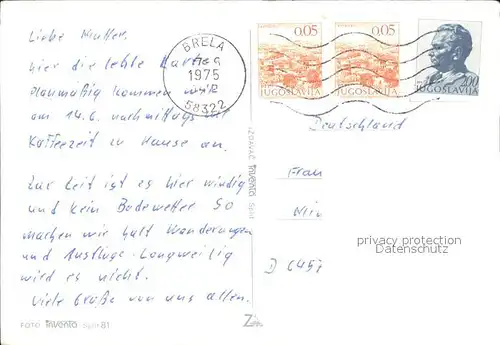 Liebe Mutter.
hier die letzte Karte
Planmäßig kommen wir
am 14.6. nachmittags zur
Kaffeezeit zu Hause an.
Zur Zeit ist es hier windig
und kein Badewetter So
machen wir halt Wanderungen
und Ausflüge. Langweilig
wird es nicht.
Viele Grüße von uns allen.
FOTO Trivento Split 81
IZDAVAČ Trivento Split
BRELA
1975
58322
0,05
JUGOSLAVIJA
0,05
JUGOSLAVIJA
2,00
JUGOSLAVIJA
Deutschland
Frau
D 645
privacy protection
Datenschutz